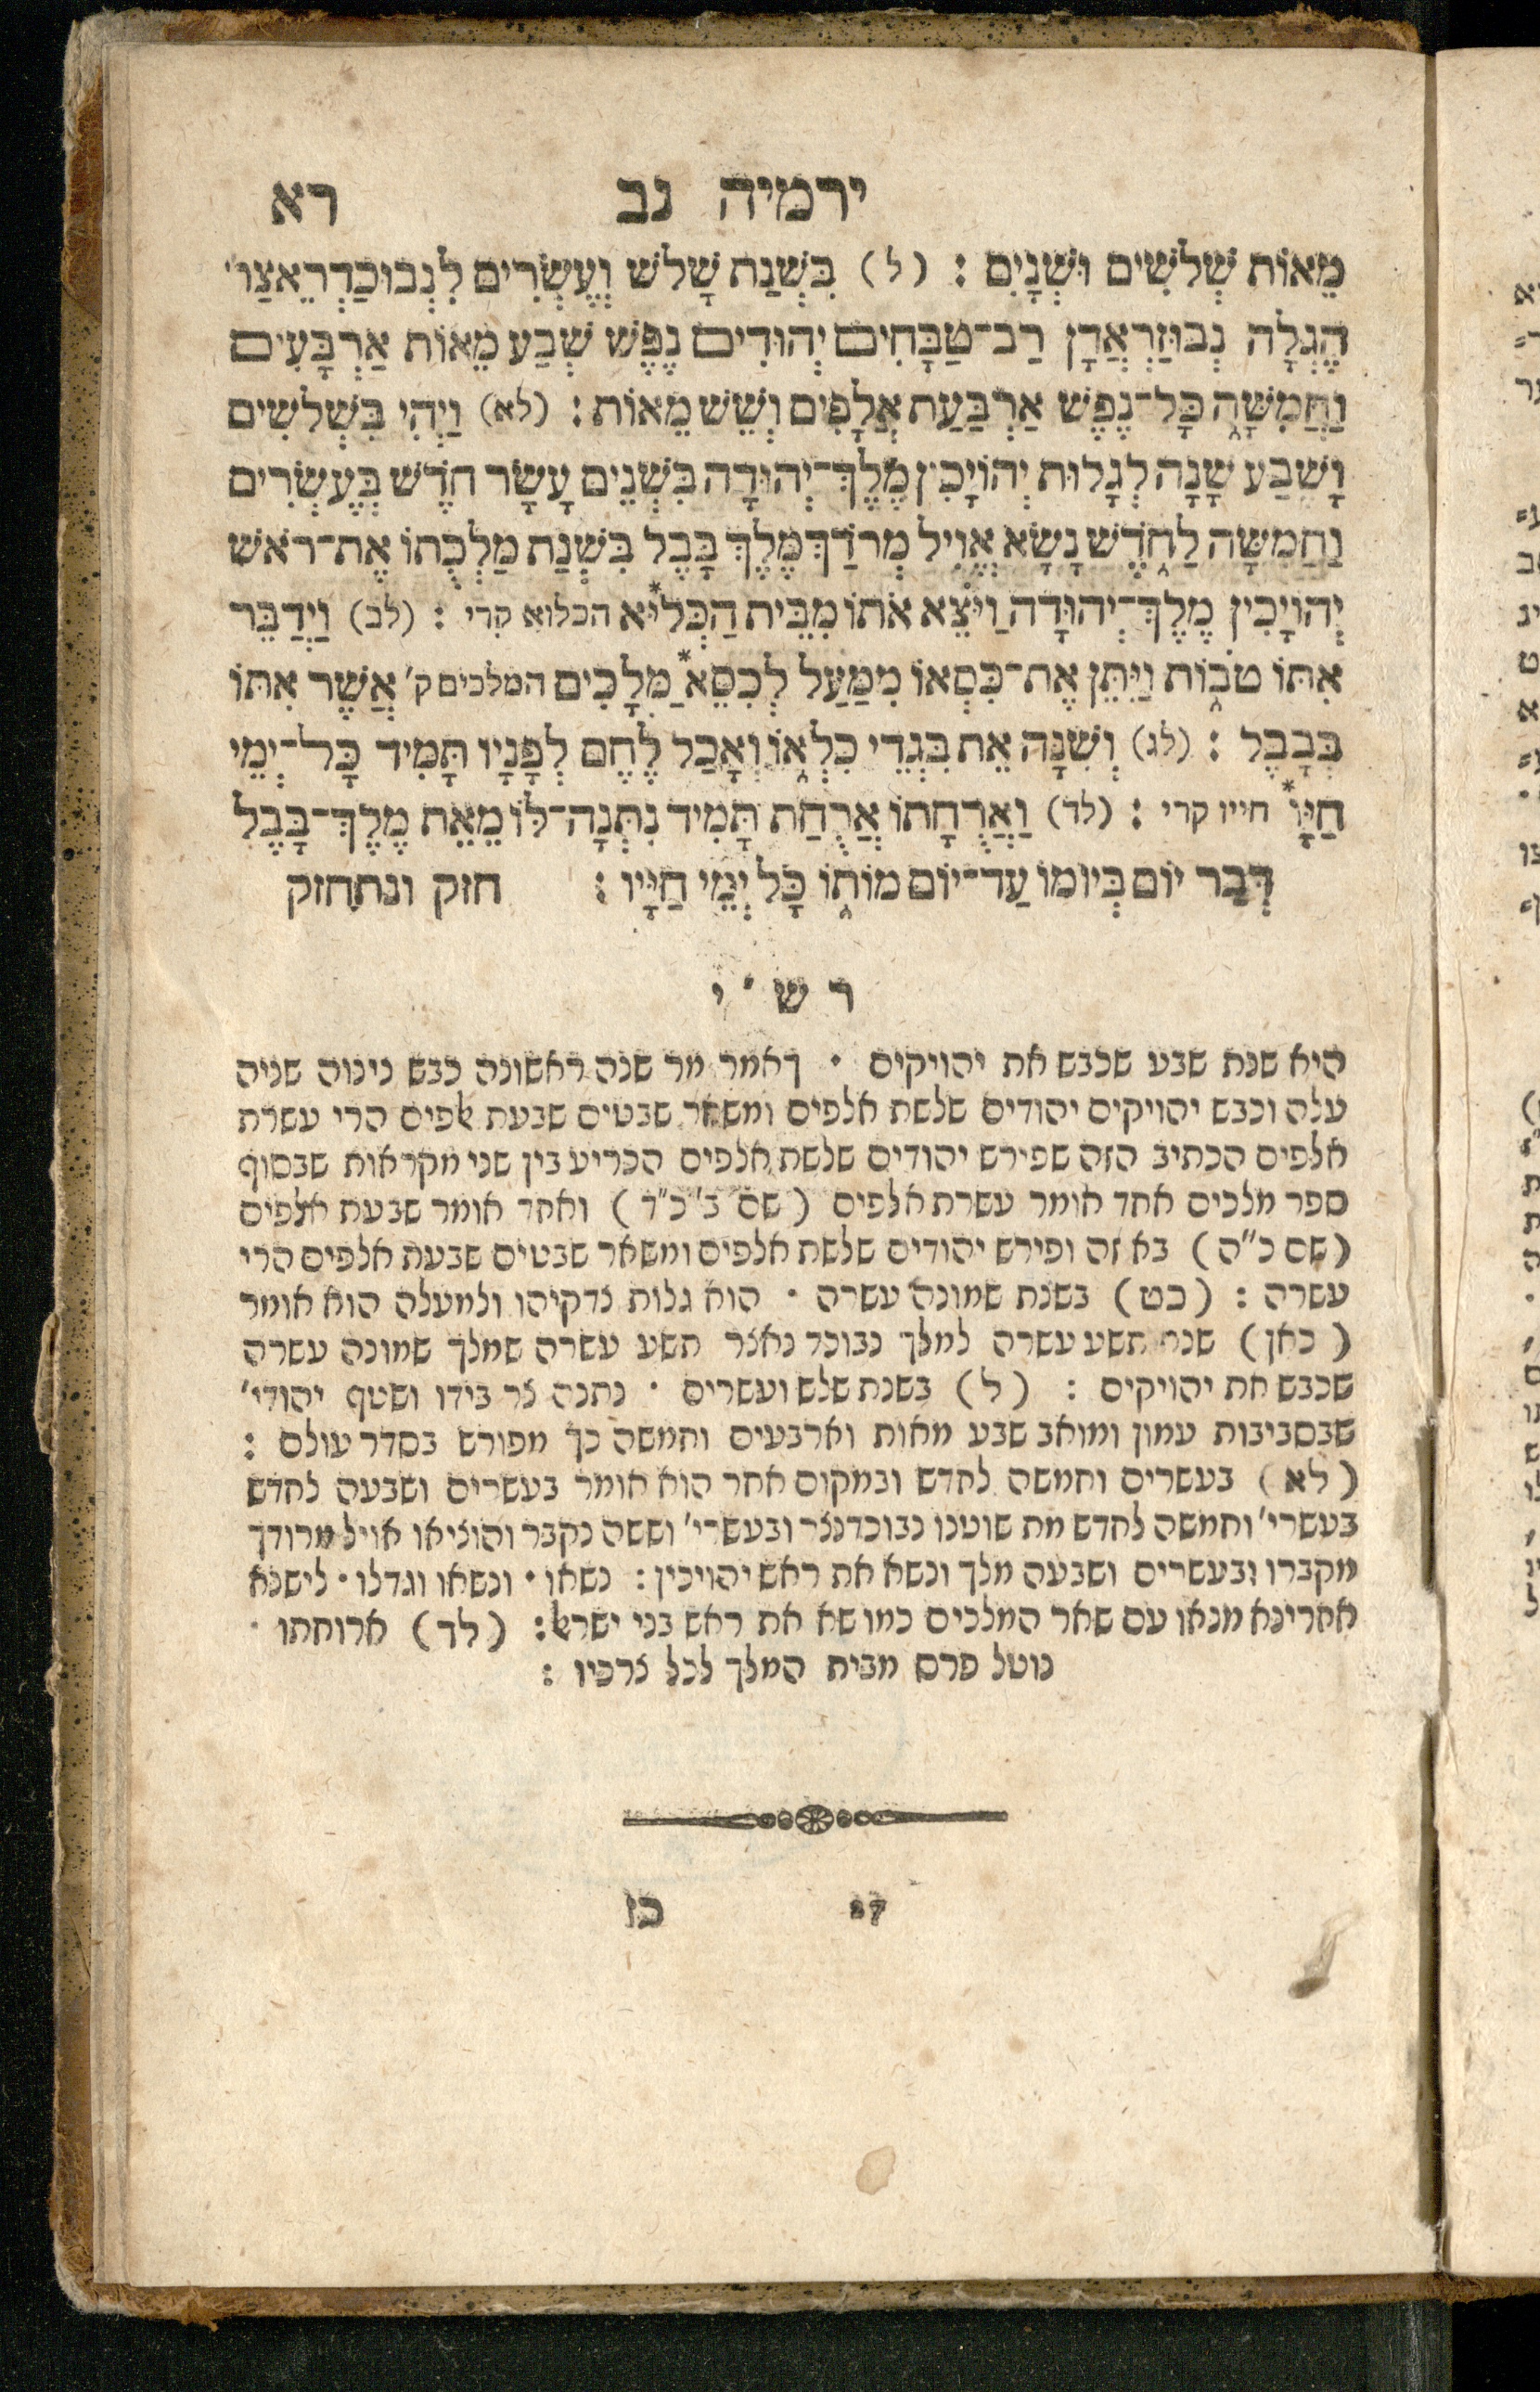 ירמיה נב רא
מֵאוֹת שְׁלשִׁים וּשְׁנָיִם : (ל) בִּשְׁנַת שָׁלשׁ וְעֶשְׂרִים לִנְבוּכַדְרֶאצַּו'
הֶגְלָה נְבוּזַרְאֲדָן רַב־טַבָּחִים יְהוּדִים נֶפֶשׁ שְׁבַע מֵאוֹת אַרְבָּעִים
וַחֲמִשָּׁה כָּל־נֶפֶשׁ אַרְבַּעַת אֲלָפִים וְשֵׁשׁ מֵאוֹת : (לא) וַיְהִי בִּשְׁלשִׁים
וָשֶׁבַע שָׁנָה לְגָלוּת יְהוֹיָכִין מֶלֶךְ־יְהוּדָה בִּשְׁנֵים עָשָׂר חֹדֶשׁ בְּעֶשְׂרִים
וַחֲמִשָּׁה לַחֹדֶשׁ נָשָׂא אֱוִיל מְרֹדַךְ מֶלֶךְ בָּבֶל בִּשְׁנַת מַלְכֻתוֹ אֶת־רֹאשׁ
יְהוֹיָכִין מֶלֶךְ־יְהוּדָה וַיֹּצֵא אֹתוֹ מִבֵּית הַכְּלִיא* הכלוא קרי : (לב) וַיְדַבֵּר
אִתּוֹ טֹבוֹת וַיִּתֵּן אֶת־כִּסְאוֹ מִמַּעַל לְכִסֵּא* מְלָכִים המלכים ק' אֲשֶׁר אִתּוֹ
בְּבָבֶל : (לג) וְשִׁנָּה אֵת בִּגְדֵי כִלְאוֹ וְאָכַל לֶחֶם לְפָנָיו תָּמִיד כָּל־יְמֵי
חַיָּו* חייו קרי : (לד) וַאֲרֻחָתוֹ אֲרֻחַת תָּמִיד נִתְּנָה־לּוֹ מֵאֵת מֶלֶךְ־בָּבֶל
דְּבַר יוֹם בְּיוֹמוֹ עַד־יוֹם מוֹתוֹ כָּל יְמֵי חַיָּיו : חזק ונתחזק
רש"י
היא שנת שבע שכבש את יהויקים · דאמר מר שנה ראשונה כבש נינוה שניה
עלה וכבש יהויקים יהודים שלשת אלפים ומשאר שבטים שבעת אלפים הרי עשרת
אלפים הכתיב הזה שפירש יהודים שלשת אלפים הכריע בין שני מקראות שבסוף
ספר מלכים אחד אומר עשרת אלפים (שם ב' כ"ד) ואחד אומר שבעת אלפים
(שם כ"ה) בא זה ופירש יהודים שלשת אלפים ומשאר שבטים שבעת אלפים הרי
עשרה : (כט) בשנת שמונה עשרה · הוא גלות צדקיהו ולמעלה הוא אומר
(כאן) שנת תשע עשרה למלך נבוכד נאצר תשע עשרה שמלך שמונה עשרה
שכבש את יהויקים : (ל) בשנת שלש ועשרים · נתנה צר בידו ושטף יהודי'
שבסביבות עמון ומואב שבע מאות וארבעים וחמשה כך מפורש בסדר עולם :
(לא) בעשרים וחמשה לחדש ובמקום אחר הוא אומר בעשרים ושבעה לחדש
בעשרי' וחמשה לחדש מת שוטנו נבוכדנצר ובעשרי' וששה נקבר והוציאו אויל מרודך
מקברו ובעשרים ושבעה מלך ונשא את ראש יהויכין : נשאו · ונשאו וגדלו · לישנא
אחרינא מנאו עם שאר המלכים כמו שא את ראש בני ישראל : (לד) ארוחתו ·
נוטל פרס מבית המלך לכל צרכיו :
27 כז